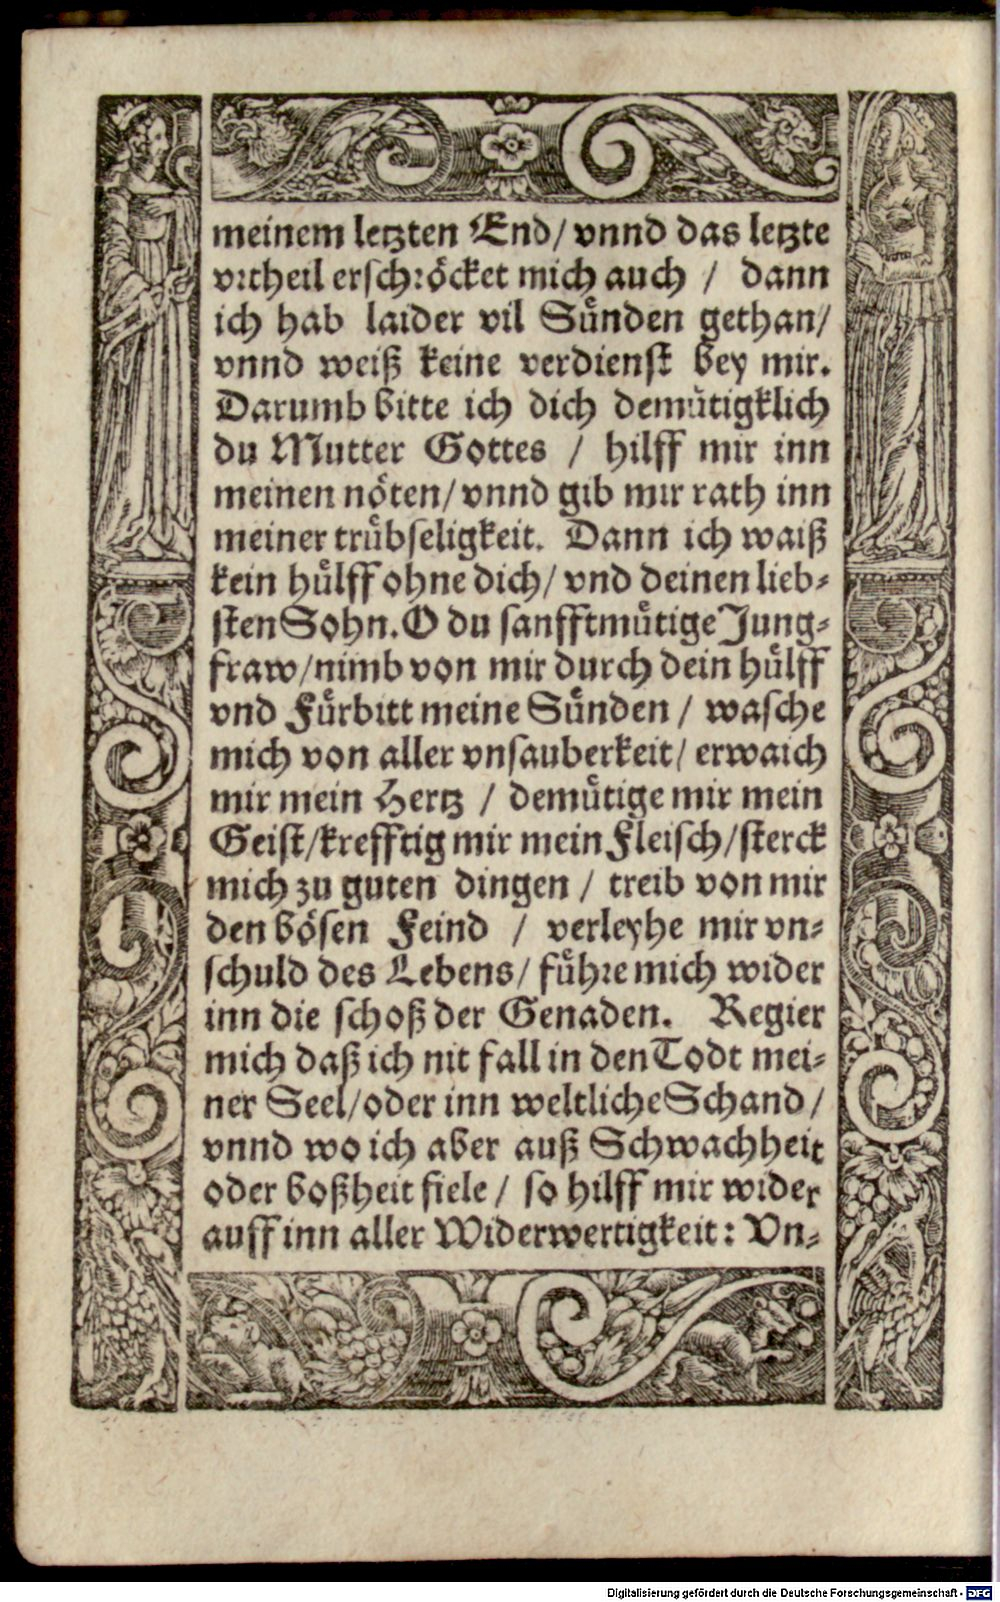 meinem letzten End/ vnnd das letzte
vrtheil erschröcket mich auch / dann
ich hab laider vil Sünden gethan/
vnnd weiß keine verdienst bey mir.
Darumb bitte ich dich demütigklich
du Mutter Gottes / hilff mir inn
meinen nöten/ vnnd gib mir rath inn
meiner trübseligkeit. Dann ich waiß
kein hülff ohne dich/ vnd deinen lieb-
sten Sohn. O du sanfftmütige Jung-
fraw/ nimb von mir durch dein hülff
vnd Fürbitt meine Sünden / wasche
mich von aller vnsauberkeit/ erwaich
mir mein Hertz / demütige mir mein
Geist/ krefftig mir mein Fleisch/ sterck
mich zu guten dingen / treib von mir
den bösen Feind / verleyhe mir vn-
schuld des Lebens/ führe mich wider
inn die schoß der Genaden. Regier
mich daß ich nit fall in den Todt mei-
ner Seel/ oder inn weltliche Schand/
vnnd wo ich aber auß Schwachheit
oder boßheit fiele / so hilff mir wider
auff inn aller Widerwertigkeit: Vn-
Digitalisierung gefördert durch die Deutsche Forschungsgemeinschaft - DFG